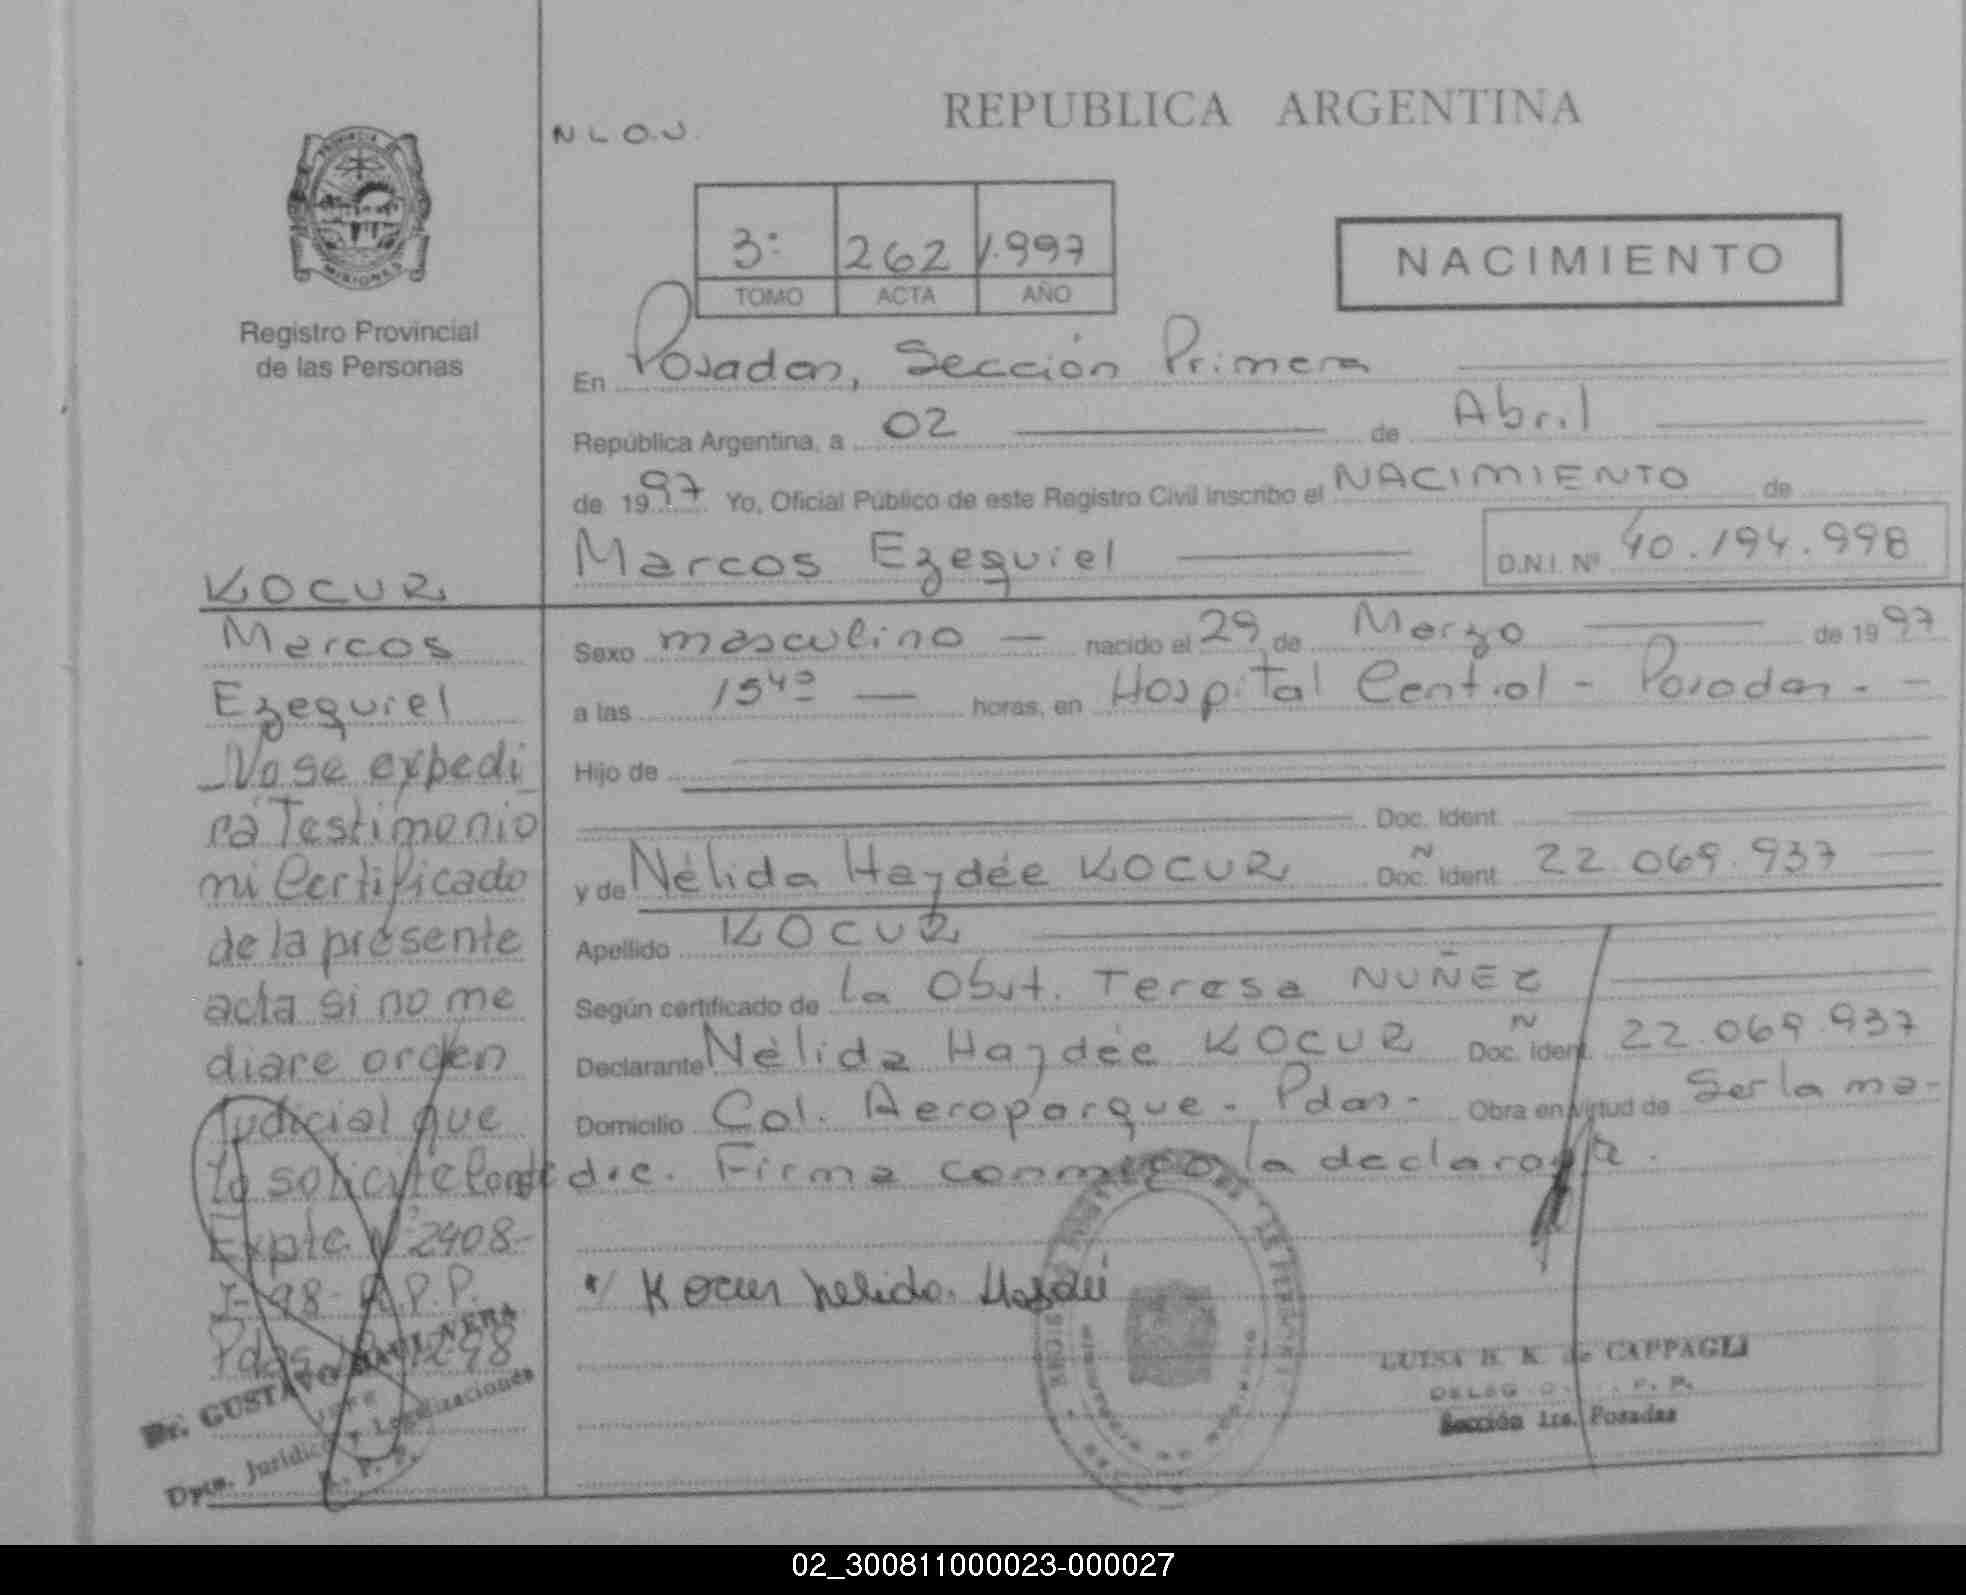 REPUBLICA ARGENTINA
N L O.J.
PROVINCIA
MISIONES
Registro Provincial
de las Personas
3º 262 1.997
TOMO ACTA AÑO
NACIMIENTO
En Posadas, Sección Primera
República Argentina, a 02 de Abril
de 1997 Yo, Oficial Público de este Registro Civil inscribo el NACIMIENTO de
Marcos Ezequiel D.N.I. Nº 40.194.998
Sexo masculino nacido el 29 de Marzo de 1997
a las 15⁴⁰ horas, en Hospital Central - Posadas. -
Hijo de
Doc. Ident.
y de Nélida Haydée KOCUR Doc. Ident. 22.069.937
Apellido KOCUR
Según certificado de la Obst. Teresa NUÑEZ
Declarante Nélida Haydée KOCUR Doc. Ident. 22.069.937
Domicilio Col. Aeroparque - Pdas. Obra en virtud de Ser la ma-
dre. Firma conmigo la declarante.
Kocur Nelida Haydeé
LUISA H. K. de CAPPAGLI
Sección 1ra. Posadas
KOCUR
Marcos
Ezequiel
No se expedi
rá Testimonio
ni Certificado
de la presente
acta si no me
diare orden
Judicial que
lo solicite Conste
Expte Nº 2408-
J-98-R.P.P.
Pdas
Dr. GUSTAVO RAUL VERA
JEFE
Dpto. Jurídico y Legalizaciones
R. P. P.
02_300811000023-000027